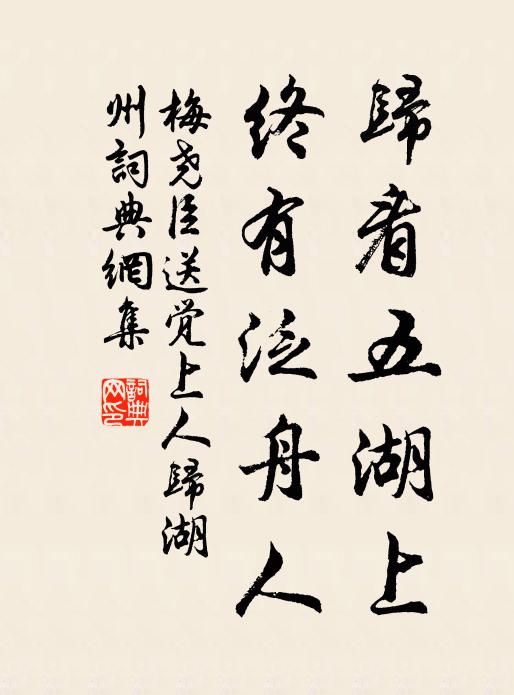 歸看五湖上
終有泛舟人
梅堯臣送覚上人歸湖
州詞典網集
詞典網印